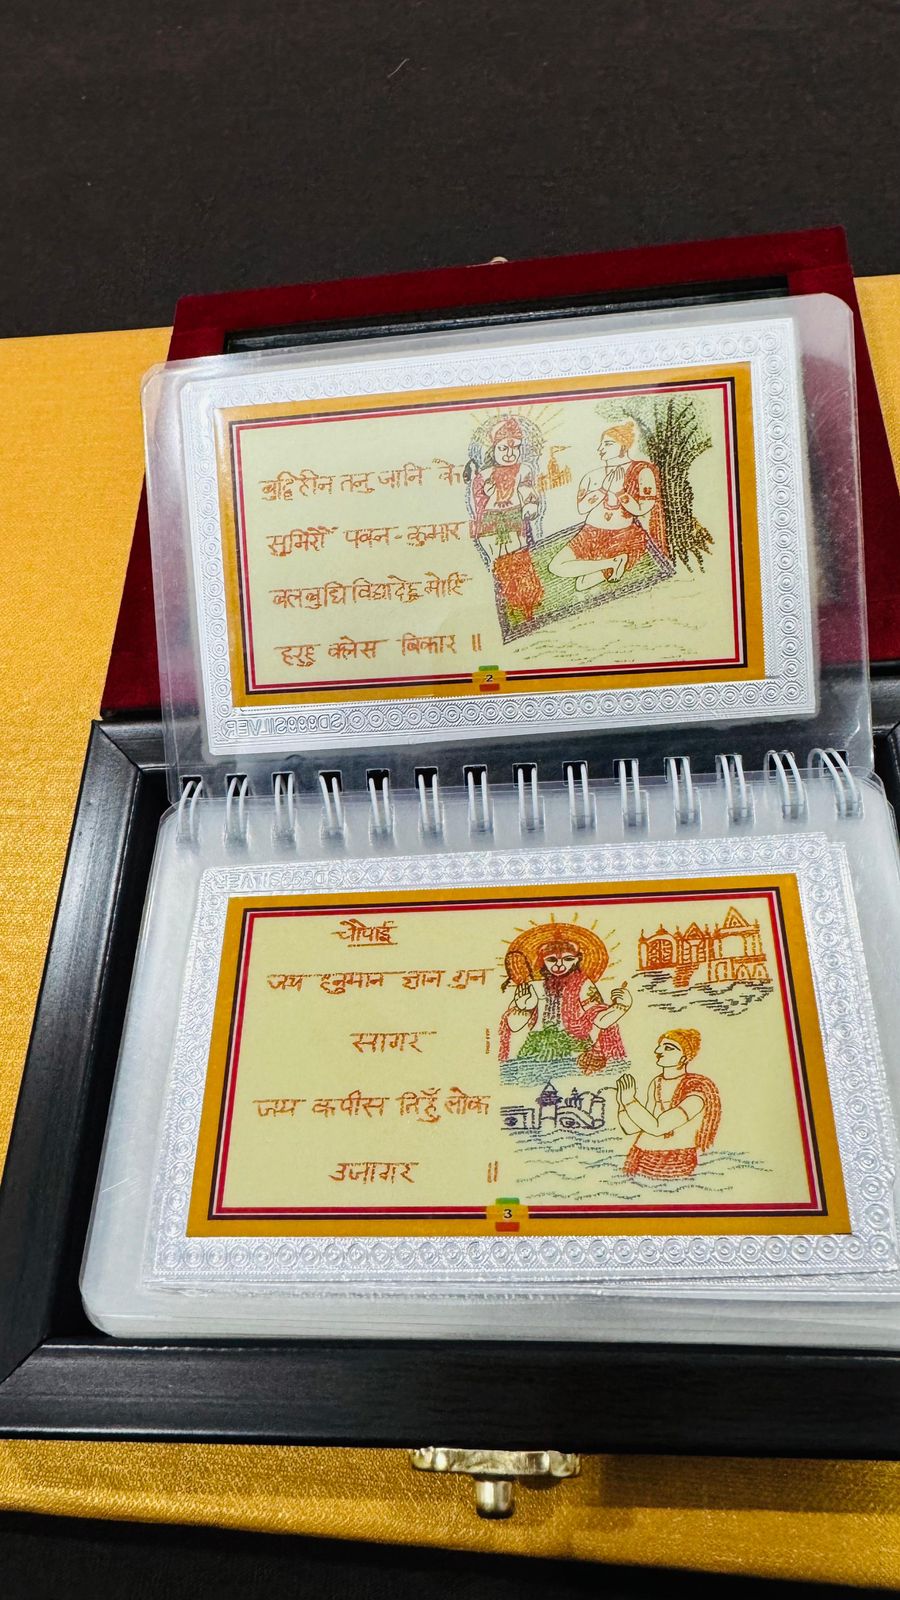 बुद्धिहीन तनु जानि के
सुमिरौं पवन-कुमार
बलबुधि विद्या देहु मोहिं
हरहु क्लेस बिकार ॥
2
SD999SILVER
SD999SILVER
चौपाई
जय हनुमान ज्ञान गुन
सागर
जय कपीस तिहुँ लोक
उजागर ॥
3